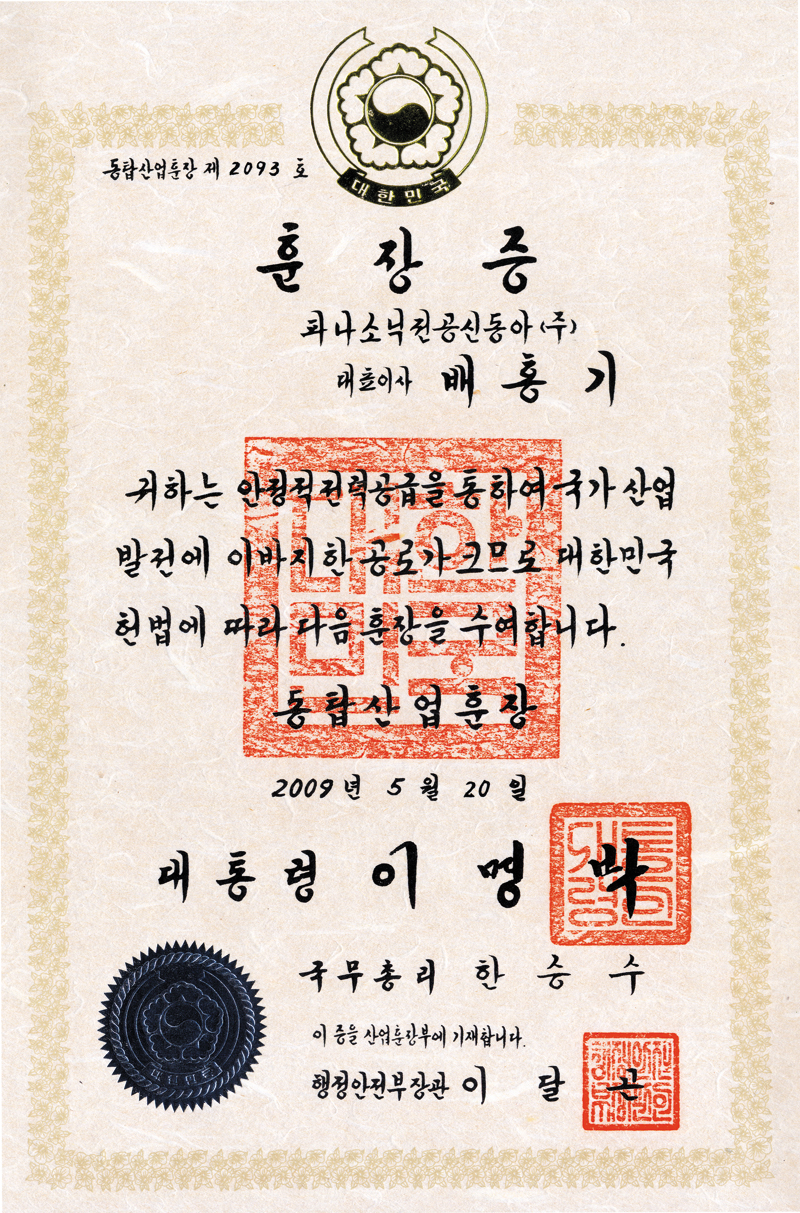 대한민국
동탑산업훈장 제 2093 호
훈장증
파나소닉전공신동아(주)
대표이사 배홍기
귀하는 안정적전력공급을 통하여 국가 산업
발전에 이바지한 공로가 크므로 대한민국
헌법에 따라 다음 훈장을 수여합니다.
동탑산업훈장
2009년 5월 20일
대통령 이명박
국무총리 한승수
이 증을 산업훈장부에 기재합니다.
행정안전부장관 이달곤
대한민국